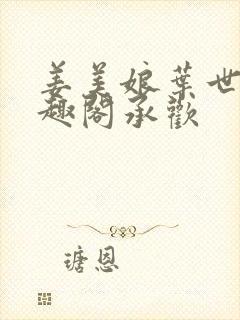 姜美娘葉世
趣閣承歡
瑭恩